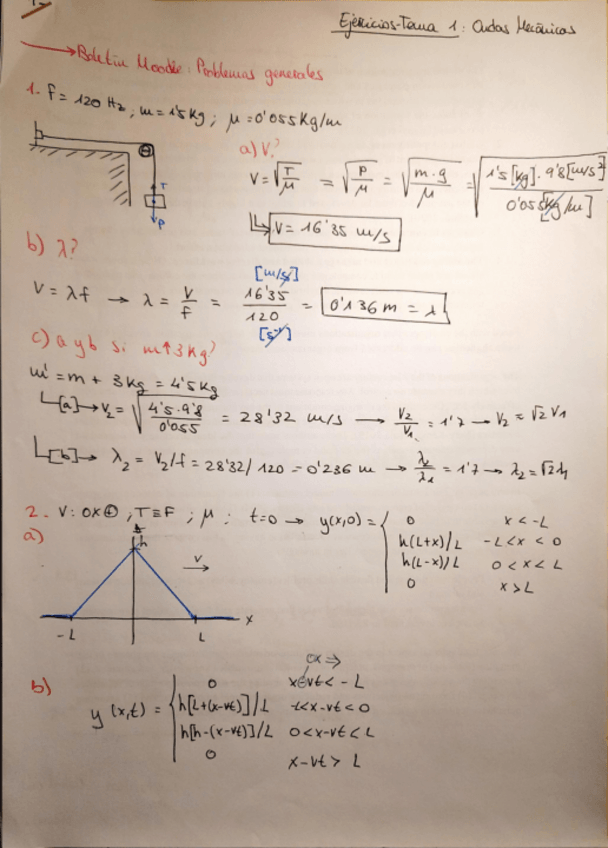 Ejercicios-Tema 1: Ondas Mecánicas
→ Boletín Moodle: Problemas generales
1. f = 120 Hz; m = 1'5 Kg; μ = 0'055 Kg/m
T
P
a) V?
V = √(T/μ) = √(P/μ) = √(m·g/μ) = √(1'5 [kg] · 9'8 [m/s²] / 0'055 [kg/m])
↳ V = 16'35 m/s
b) λ?
V = λf → λ = V/f = 16'35 [m/s] / 120 [s⁻¹] = 0'136 m = λ
c) a y b si m↑3Kg?
m' = m + 3 Kg = 4'5 Kg
↳[a]→ V₂ = √(4'5·9'8 / 0'055) = 28'32 m/s → V₂/V₁ = 1'7 → V₂ = √2 V₁
↳[b]→ λ₂ = V₂/f = 28'32/120 = 0'236 m → λ₂/λ₁ = 1'7 → λ₂ = √2 λ₁
2. V: OX⊕; T≡F; μ; t=0 → y(x,0) = { 0 x < -L
h(L+x)/L -L < x < 0
h(L-x)/L 0 < x < L
0 x > L
a)
h
v
-L L x
b)
OX ⇒
y(x,t) = { 0 x-vt < -L
h[L+(x-vt)]/L -L<x-vt<0
h[h-(x-vt)]/L 0<x-vt<L
0 x-vt > L